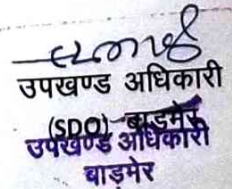 उपखण्ड अधिकारी
(SDO) बाड़मेर
उपखण्ड अधिकारी
बाड़मेर